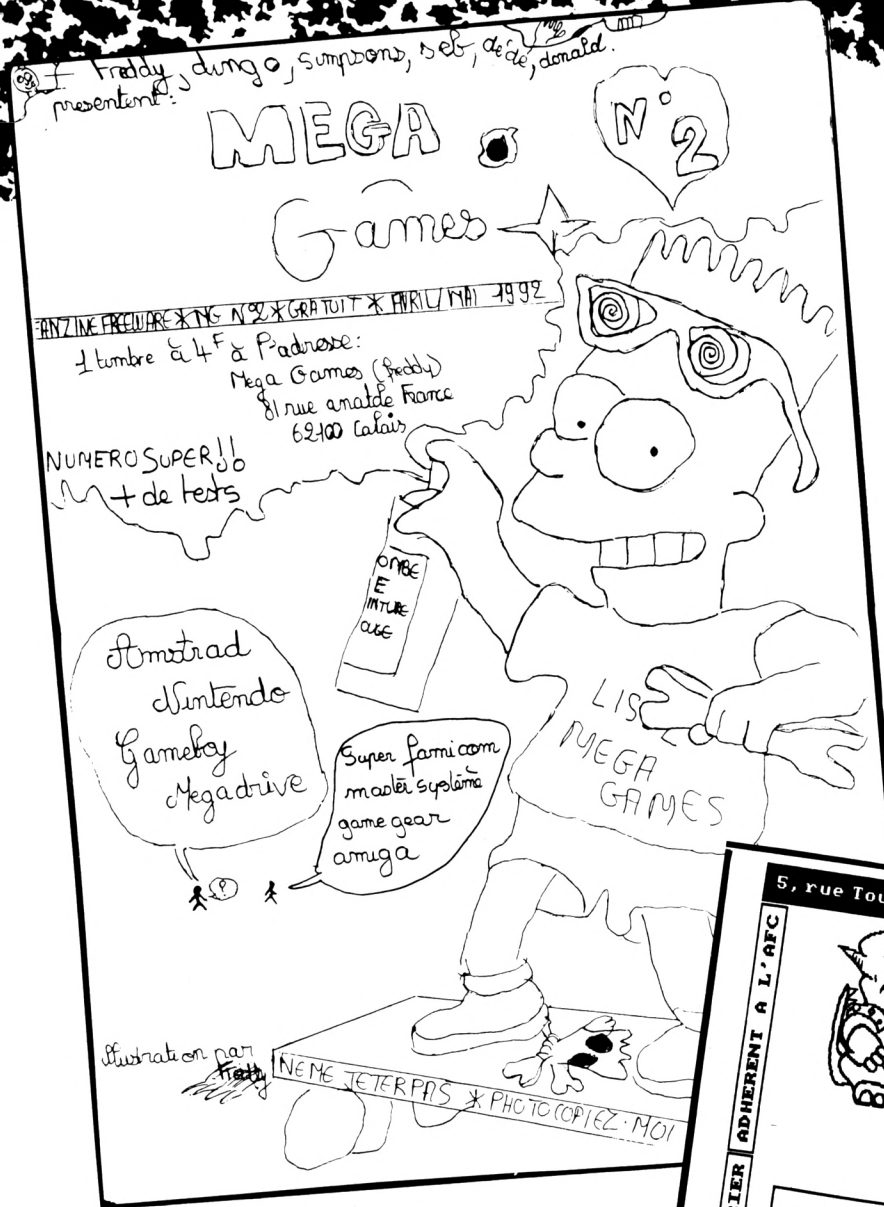 Freddy, dingo, simpsons, seb, dédé, donald.
presentent:
MEGA
N° 2
Games
FANZINE FREEWARE * MG N°2 * GRATUIT * AVRIL/MAI 1992
1 timbre à 4F à l'adresse:
Mega Games (freddy)
81 rue anatole France
62100 Calais
NUMERO SUPER!!
+ de tests
OMBE
E
INTURE
Amstrad
Nintendo
Gameboy
Megadrive
Super famicom
master système
game gear
amiga
?
LIS
MEGA
GAMES
illustration par
Freddy
NE ME JETER PAS * PHOTOCOPIEZ-MOI
5, rue Tou
ADHERENT A L'AFC
IER